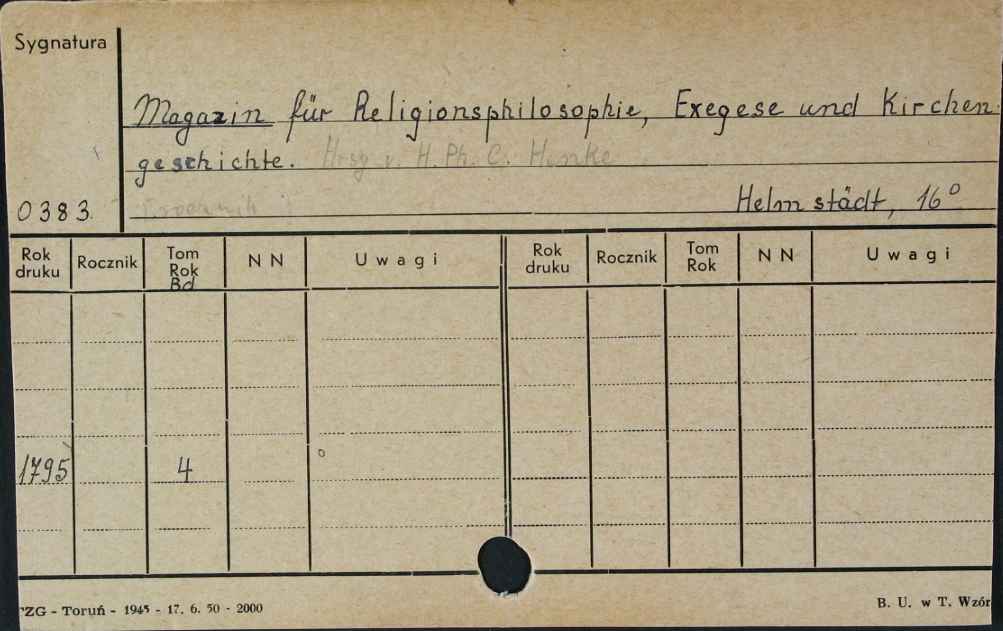 Sygnatura
Magazin für Religionsphilosophie, Exegese und Kirchen
geschichte. Hrsg v. H. Ph. C. Henke
0383.
Helmstädt, 16°
Rok druku Rocznik Tom Rok Bd NN Uwagi Rok druku Rocznik Tom Rok NN Uwagi
1795 4
ZG - Toruń - 1945 - 17. 6. 50 - 2000
B. U. w T. Wzór